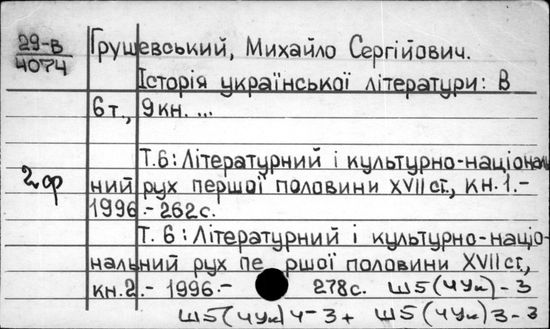 29-В
4074
Грушевський, Михайло Сергійович.
Історія української літератури: В
6 т., 9 кн. ...
Т.6: Літературний і культурно-націонал
2 ф
ний рух першої половини XVII ст., кн. 1.-
1996.- 262 с.
Т. 6: Літературний і культурно-націо-
нальний рух пе ршої половини XVII ст.,
кн. 2.- 1996.- 278с. Ш5(4Ук)-3
Ш5(4Ук)4-3+ Ш5(4Ук)3-3